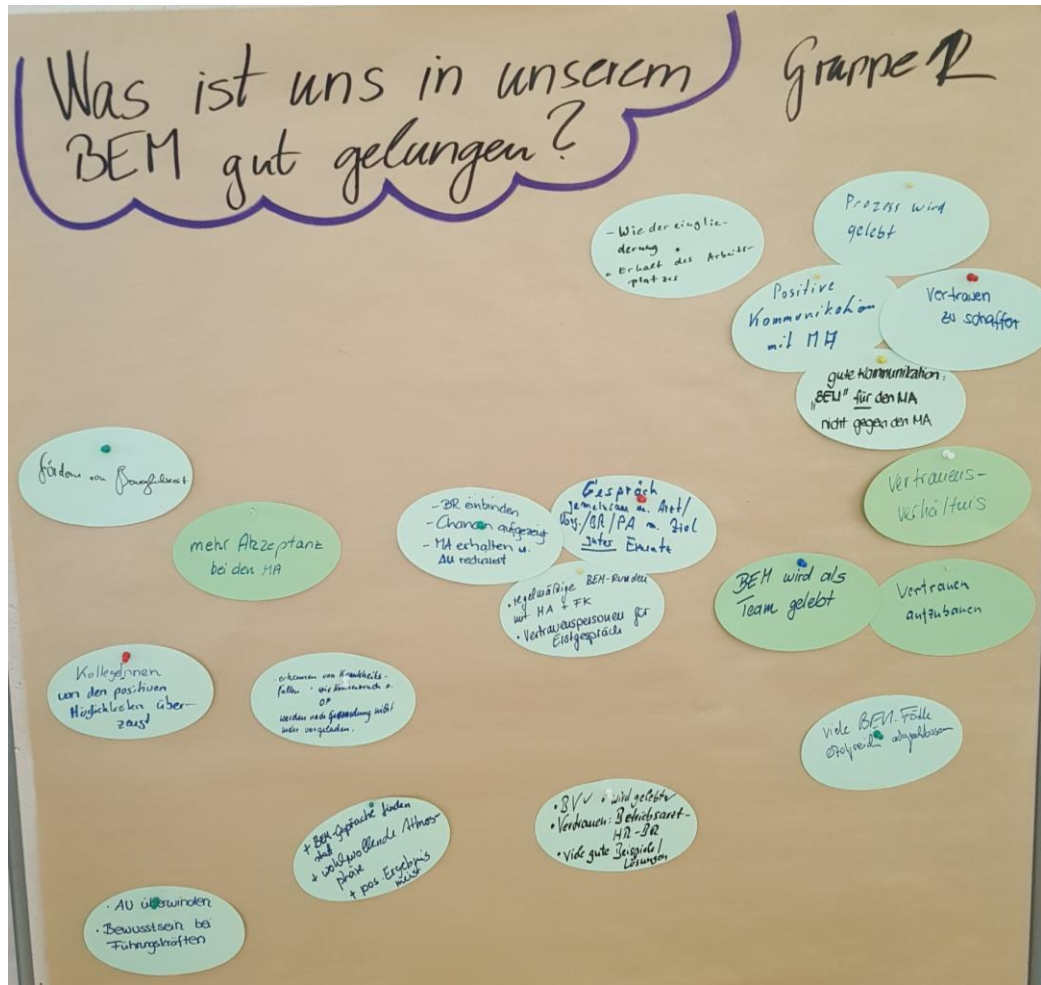 Was ist uns in unserem
BEM gut gelungen?
Gruppe
- Wiedereinglie-
derung
• Erhalt des Arbeits-
platzes
Prozess wird
gelebt
Positive
Kommunikation
mit MA
Vertrauen
zu schaffen
gute Kommunikation:
"BEM" für den MA
nicht gegen den MA
Vertrauens-
verhältnis
fördern von
mehr Akzeptanz
bei den MA
- BR einbinden
- Chancen aufgezeigt
- MA erhalten u.
AU reduziert
Gespräch
gemeinsam m. Arzt/
Vorg./BR/PA m. Ziel
guter Einsatz
• regelmäßige BEM-Runden
mit MA + FK
• Vertrauenspersonen für
Erstgespräch
BEM wird als
Team gelebt
Vertrauen
aufzubauen
KollegInnen
von den positiven
Möglichkeiten über-
zeugt
- erkennen von Krankheits-
fällen • wie Knochenbruch o.
OP
werden nach Genesung nicht
mehr vorgeladen.
viele BEM-Fälle
erfolgreich abgeschlossen
+ BEM-Gespräche finden
statt
+ wohlwollende Atmos-
phäre
+ pos. Ergebnis
meist
• BV✓ • wird gelebt✓
• Vertrauen: Betriebsarzt-
HR-BR
• viele gute Beispiele/
Lösungen
• AU überwinden
• Bewusstsein bei
Führungskräften